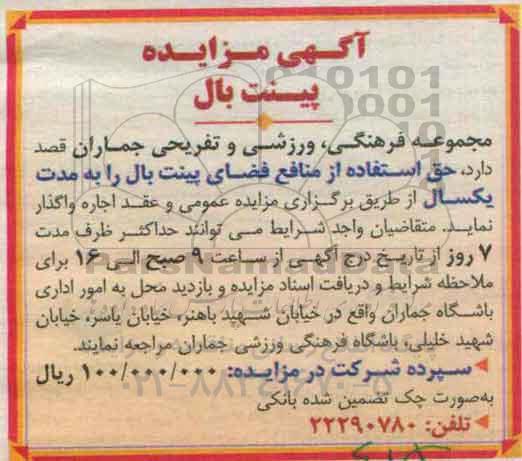 آگهی مزایده
پینت بال
مجموعه فرهنگی، ورزشی و تفریحی جماران قصد
دارد، حق استفاده از منافع فضای پینت بال را به مدت
یکسال از طریق برگزاری مزایده عمومی و عقد اجاره واگذار
نماید. متقاضیان واجد شرایط می توانند حداکثر ظرف مدت
۷ روز از تاریخ درج آگهی از ساعت ۹ صبح الی ۱۶ برای
ملاحظه شرایط و دریافت اسناد مزایده و بازدید محل به امور اداری
باشگاه جماران واقع در خیابان شهید باهنر، خیابان یاسر، خیابان
شهید خلیلی، باشگاه فرهنگی ورزشی جماران مراجعه نمایند.
سپرده شرکت در مزایده: ۱۰۰/۰۰۰/۰۰۰ ریال
به‌صورت چک تضمین شده بانکی
تلفن: ۲۲۲۹۰۷۸۰
ParsNamadData
۰۲۱-۸۸۳۴۹۶۷۰-۵